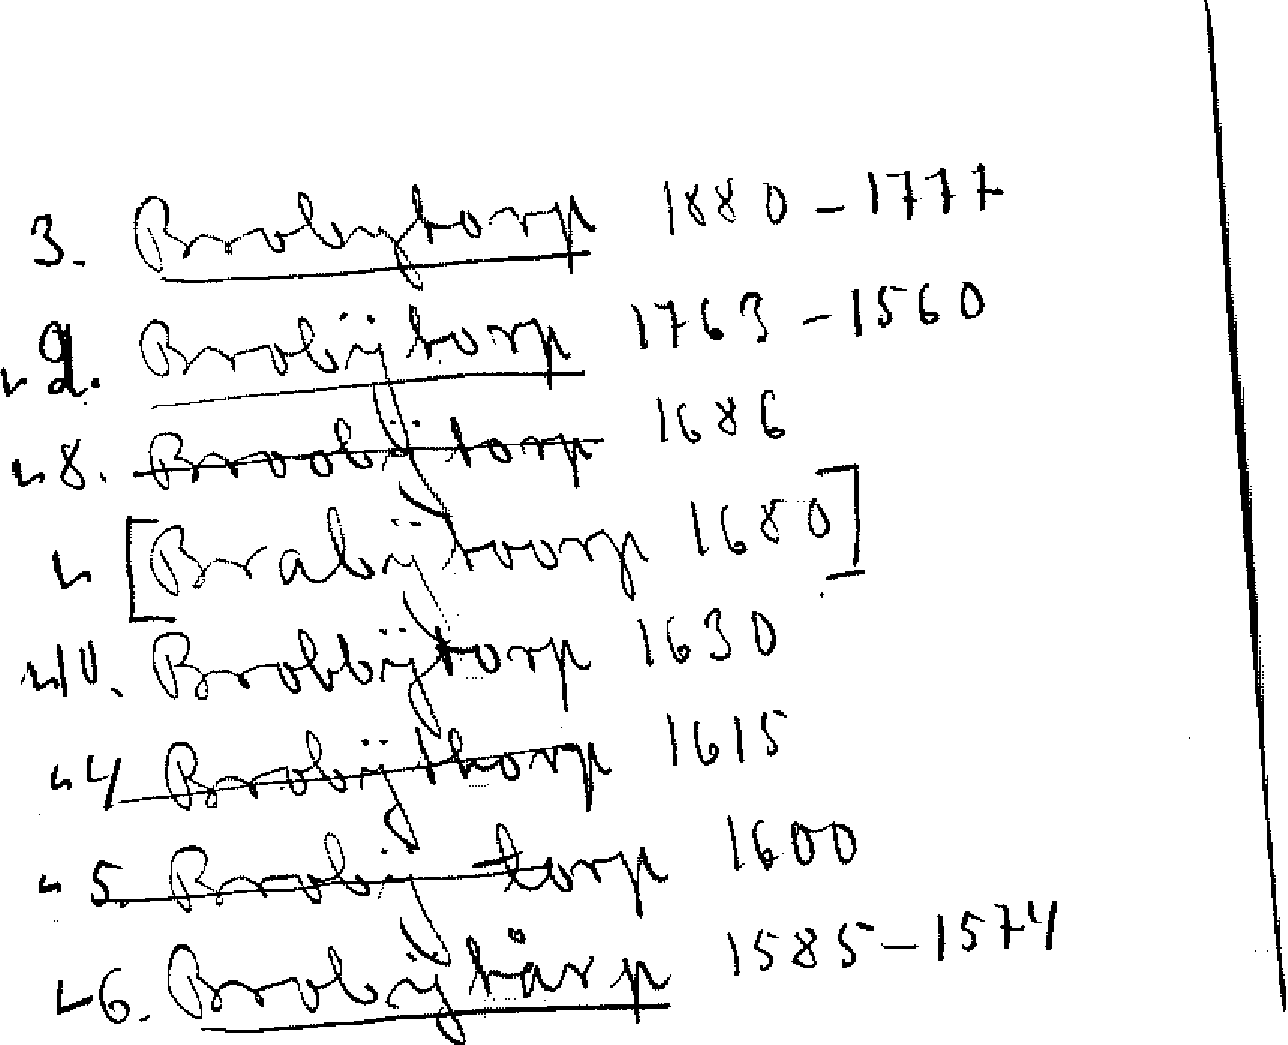 3. Brobytorp 1880-1777
" 2. Brobÿtorp 1763-1560
" 8. Broobÿtorp 1686
" [Brabÿtoorp 1680]
" 10. Brobbÿtorp 1630
" 4 Brobÿthorp 1615
" 5. Brobÿ torp 1600
" 6. Brobÿtårp 1585-1574